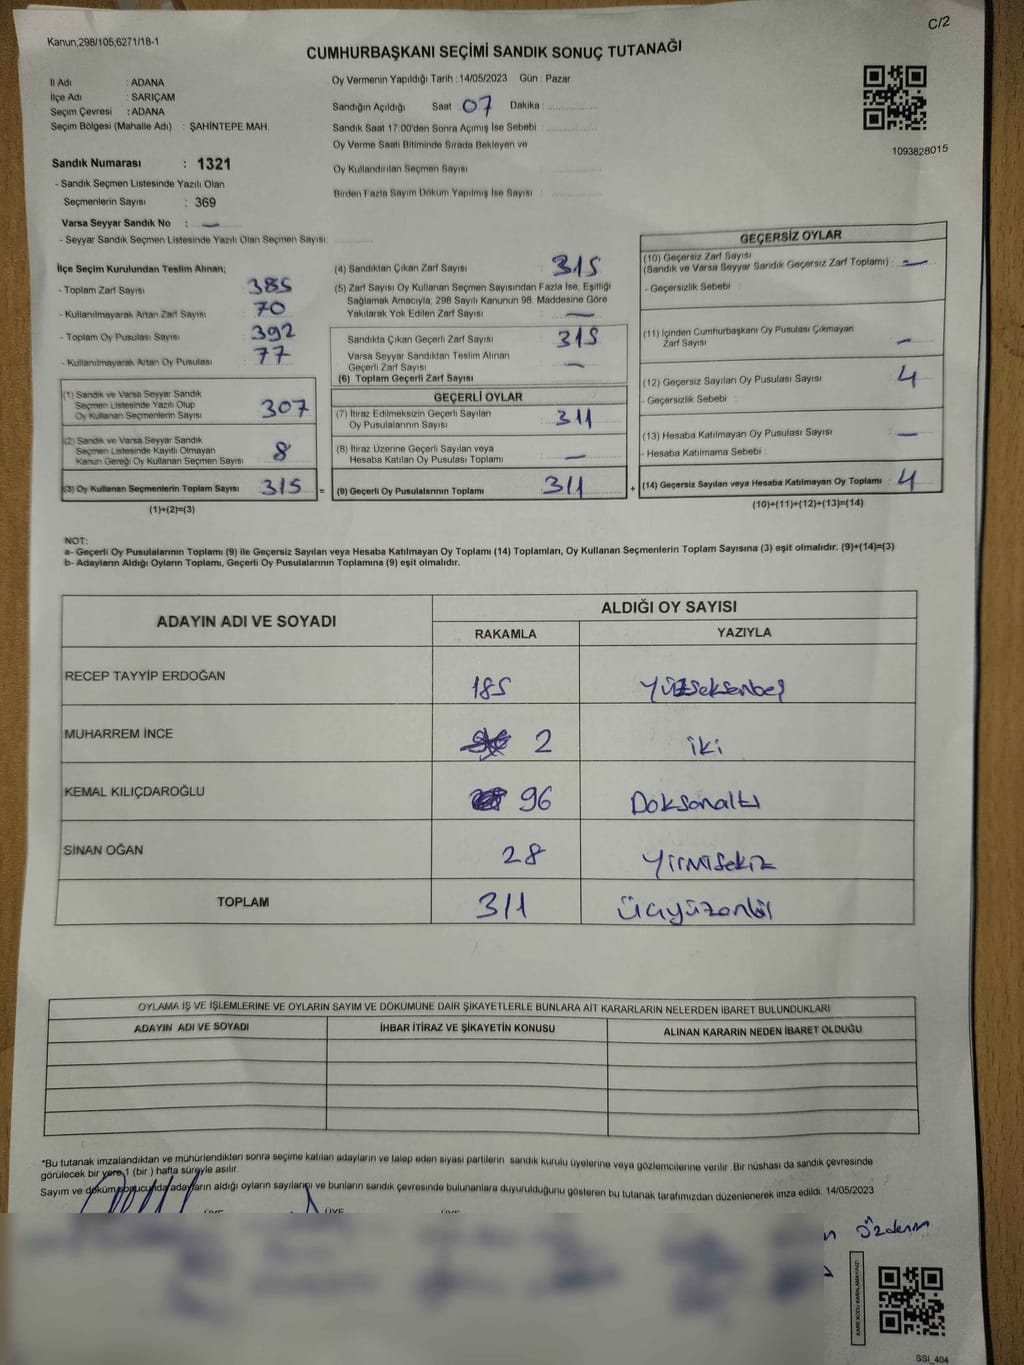 C/2
Kanun;298/105,6271/18-1
CUMHURBAŞKANI SEÇİMİ SANDIK SONUÇ TUTANAĞI
İl Adı : ADANA
İlçe Adı : SARIÇAM
Seçim Çevresi : ADANA
Seçim Bölgesi (Mahalle Adı) : ŞAHİNTEPE MAH.
Oy Vermenin Yapıldığı Tarih :14/05/2023 Gün : Pazar
Sandığın Açıldığı Saat : 07 Dakika :
Sandık Saat 17.00'den Sonra Açılmış İse Sebebi :
Oy Verme Saati Bitiminde Sırada Bekleyen ve
Oy Kullandırılan Seçmen Sayısı :
Birden Fazla Sayım Döküm Yapılmış İse Sayısı :
1093828015
Sandık Numarası : 1321
- Sandık Seçmen Listesinde Yazılı Olan
Seçmenlerin Sayısı : 369
Varsa Seyyar Sandık No : —
- Seyyar Sandık Seçmen Listesinde Yazılı Olan Seçmen Sayısı :
İlçe Seçim Kurulundan Teslim Alınan;
- Toplam Zarf Sayısı : 385
- Kullanılmayarak Artan Zarf Sayısı : 70
- Toplam Oy Pusulası Sayısı : 392
- Kullanılmayarak Artan Oy Pusulası : 77
(1) Sandık ve Varsa Seyyar Sandık
Seçmen Listesinde Yazılı Olup
Oy Kullanan Seçmenlerin Sayısı : 307
(2) Sandık ve Varsa Seyyar Sandık
Seçmen Listesinde Kayıtlı Olmayan
Kanun Gereği Oy Kullanan Seçmen Sayısı : 8
(3) Oy Kullanan Seçmenlerin Toplam Sayısı : 315 =
(1)+(2)=(3)
(4) Sandıktan Çıkan Zarf Sayısı : 315
(5) Zarf Sayısı Oy Kullanan Seçmen Sayısından Fazla İse, Eşitliği
Sağlamak Amacıyla; 298 Sayılı Kanunun 98. Maddesine Göre
Yakılarak Yok Edilen Zarf Sayısı : —
Sandıkta Çıkan Geçerli Zarf Sayısı : 315
Varsa Seyyar Sandıktan Teslim Alınan
Geçerli Zarf Sayısı : —
(6) Toplam Geçerli Zarf Sayısı :
GEÇERLİ OYLAR
(7) İtiraz Edilmeksizin Geçerli Sayılan
Oy Pusulalarının Sayısı : 311
(8) İtiraz Üzerine Geçerli Sayılan veya
Hesaba Katılan Oy Pusulası Toplamı : —
(9) Geçerli Oy Pusulalarının Toplamı : 311 +
GEÇERSİZ OYLAR
(10) Geçersiz Zarf Sayısı
(Sandık ve Varsa Seyyar Sandık Geçersiz Zarf Toplamı) : —
- Geçersizlik Sebebi :
(11) İçinden Cumhurbaşkanı Oy Pusulası Çıkmayan
Zarf Sayısı : —
(12) Geçersiz Sayılan Oy Pusulası Sayısı : 4
- Geçersizlik Sebebi :
(13) Hesaba Katılmayan Oy Pusulası Sayısı : —
- Hesaba Katılmama Sebebi :
(14) Geçersiz Sayılan veya Hesaba Katılmayan Oy Toplamı : 4
(10)+(11)+(12)+(13)=(14)
NOT:
a- Geçerli Oy Pusulalarının Toplamı (9) ile Geçersiz Sayılan veya Hesaba Katılmayan Oy Toplamı (14) Toplamları, Oy Kullanan Seçmenlerin Toplam Sayısına (3) eşit olmalıdır. (9)+(14)=(3)
b- Adayların Aldığı Oyların Toplamı, Geçerli Oy Pusulalarının Toplamına (9) eşit olmalıdır.
ADAYIN ADI VE SOYADI
ALDIĞI OY SAYISI
RAKAMLA YAZIYLA
RECEP TAYYİP ERDOĞAN 185 Yüzseksenbeş
MUHARREM İNCE 2 iki
KEMAL KILIÇDAROĞLU 96 Doksanaltı
SİNAN OĞAN 28 Yirmisekiz
TOPLAM 311 Üçyüzonbir
OYLAMA İŞ VE İŞLEMLERİNE VE OYLARIN SAYIM VE DÖKÜMÜNE DAİR ŞİKAYETLERLE BUNLARA AİT KARARLARIN NELERDEN İBARET BULUNDUKLARI
ADAYIN ADI VE SOYADI İHBAR İTİRAZ VE ŞİKAYETİN KONUSU ALINAN KARARIN NEDEN İBARET OLDUĞU
*Bu tutanak imzalandıktan ve mühürlendikten sonra seçime katılan adayların ve talep eden siyasi partilerin sandık kurulu üyelerine veya gözlemcilerine verilir. Bir nüshası da sandık çevresinde
görülecek bir yere 1 (bir ) hafta süreyle asılır.
Sayım ve döküm sonucunda adayların aldığı oyların sayılarını ve bunların sandık çevresinde bulunanlara duyurulduğunu gösteren bu tutanak tarafımızdan düzenlenerek imza edildi. 14/05/2023
ÜYE ÜYE ÜYE
Özdemir
KARE KODU KARALAMAYINIZ!
SSI_404